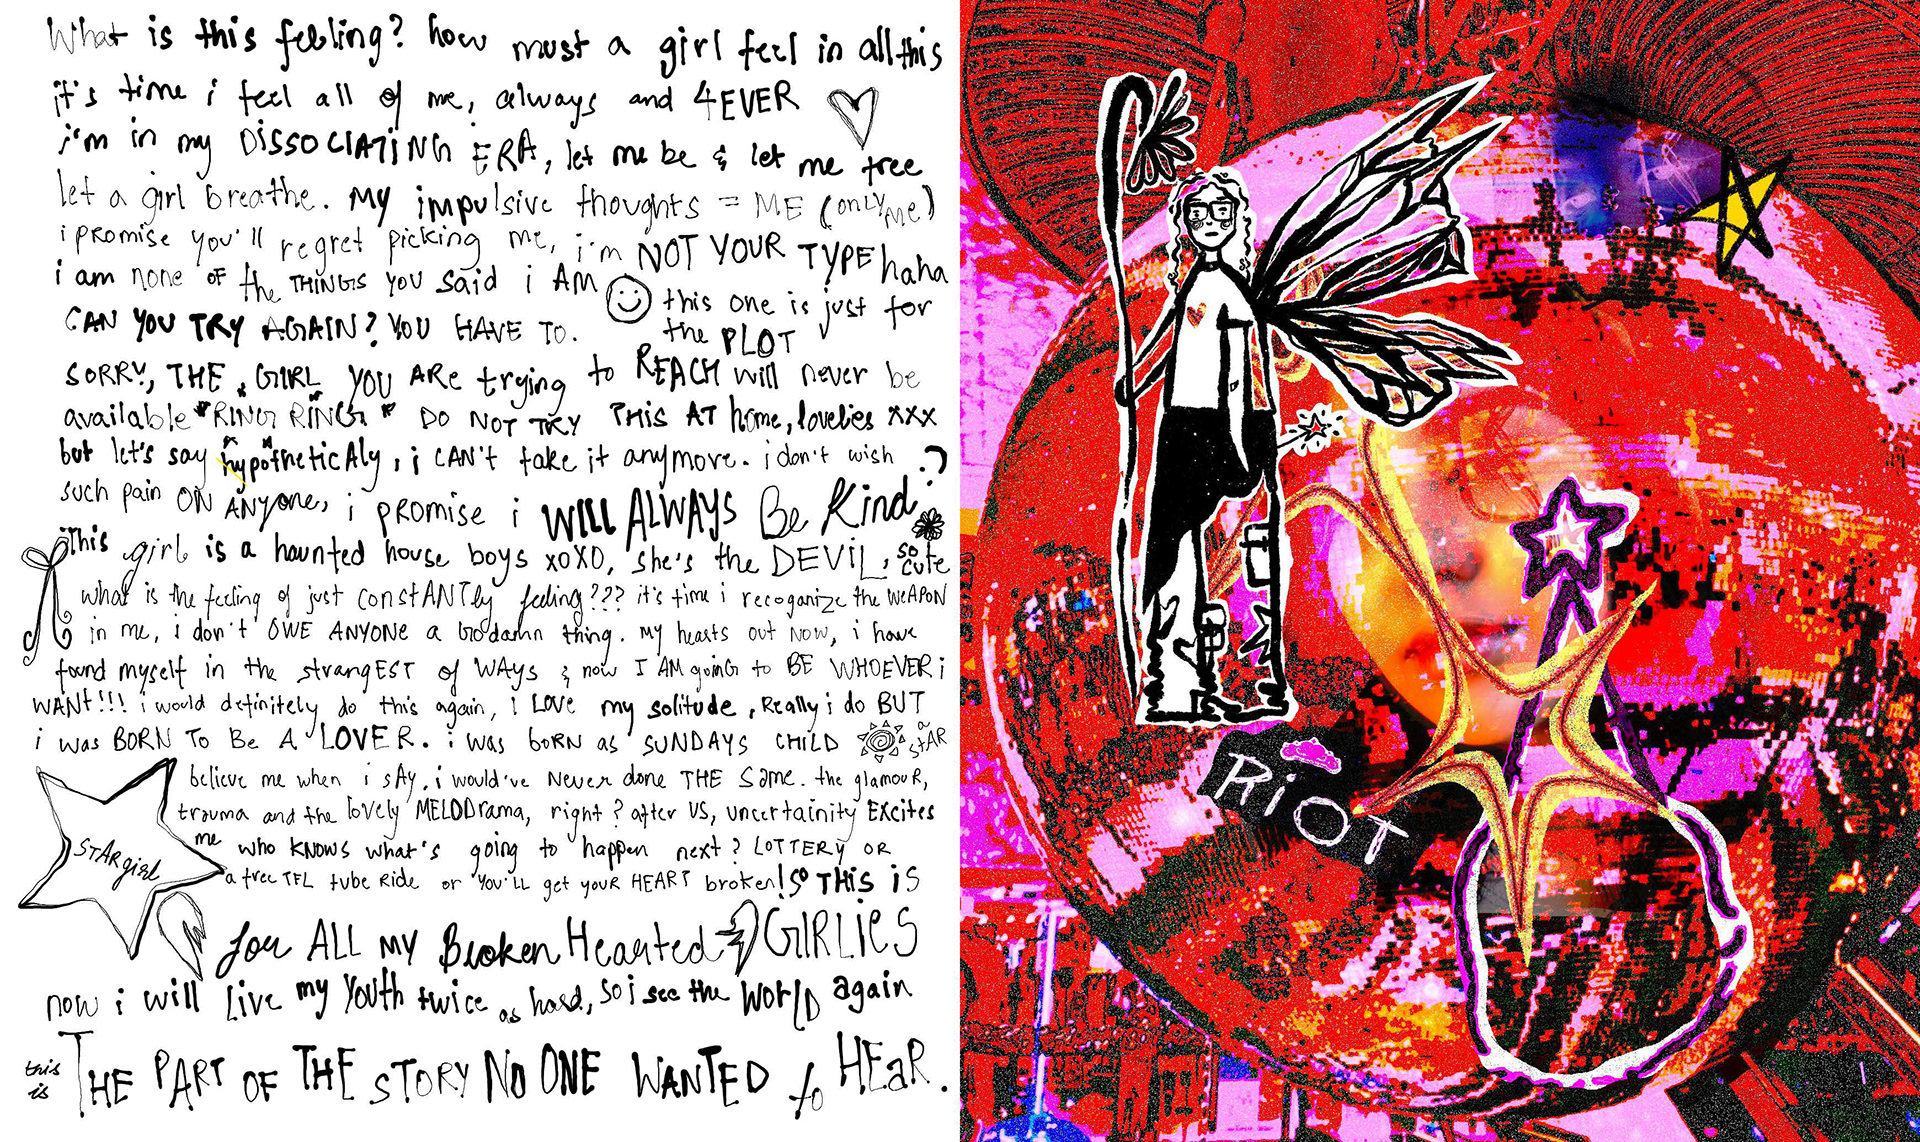 What is this feeling? how must a girl feel in all this
it's time i feel all of me, always and 4EVER
i'm in my DISSOCIATING ERA, let me be & let me free
let a girl breathe. My impulsive thoughts = ME (only ME)
i promise you'll regret picking me, i'm NOT YOUR TYPE haha
i am none of the THINGS YOU said i AM
this one is just for
the PLOT
CAN YOU TRY AGAIN? YOU HAVE TO.
SORRY, THE GIRL YOU ARE trying to REACH will never be
available *RING RING* DO NOT TRY THIS AT home, lovelies xxx
but let's say hypotheticAly, i CAN'T take it anymore. i don't wish
such pain ON ANYone, i promise i WILL ALWAYS Be Kind?
This girl is a haunted house boys XOXO, she's the DEVIL, so CUTE
what is the feeling of just constANTly feeling??? it's time i recoganize the WEAPON
in me, i don't OWE ANYONE a Godamn thing. My hearts out NOW, i have
found myself in the strangEST of WAYs & now I AM goinG to BE WHOEVER i
WANT!!! i would definitely do this again, i LOVE my solitude, Really i do BUT
i was BORN TO Be A LOVER. i was boRN as SUNDAYS CHILD a stAR
believe me when i sAy, i would've NEVER done THE SAme. the glamouR,
trauma and the lovely MELODrama, right? after US, uncertainity EXCITES
me who KNOWS what's going to happen next? LOTTERY OR
a free TFL tube Ride or YOU'LL get your HEART broken! SO THIS iS
STARgirl
for ALL my Broken Hearted GIRLiES
now i will Live my Youth twice as hard, so i see the World again
this is THE PART OF THE STORY NO ONE WANTED to HEaR.
RiOT